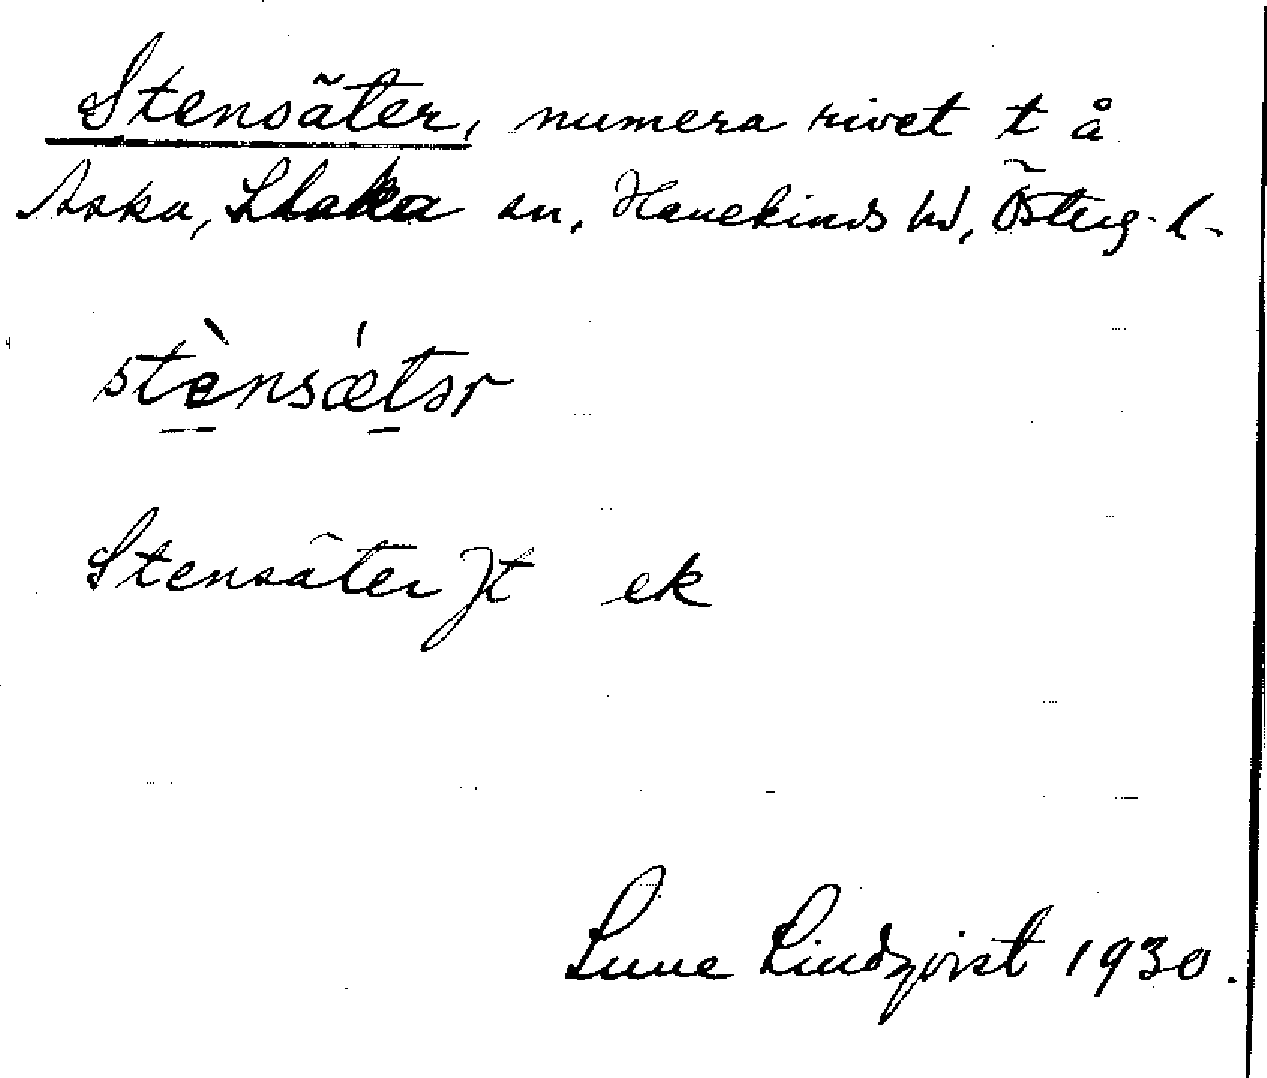 Stensäter, numera rivet t å
Aska, Slaka sn, Hanekinds hd, Österg. l.
stènsǽtər
Stensäter Jt ek
Sune Lindqvist 1930.